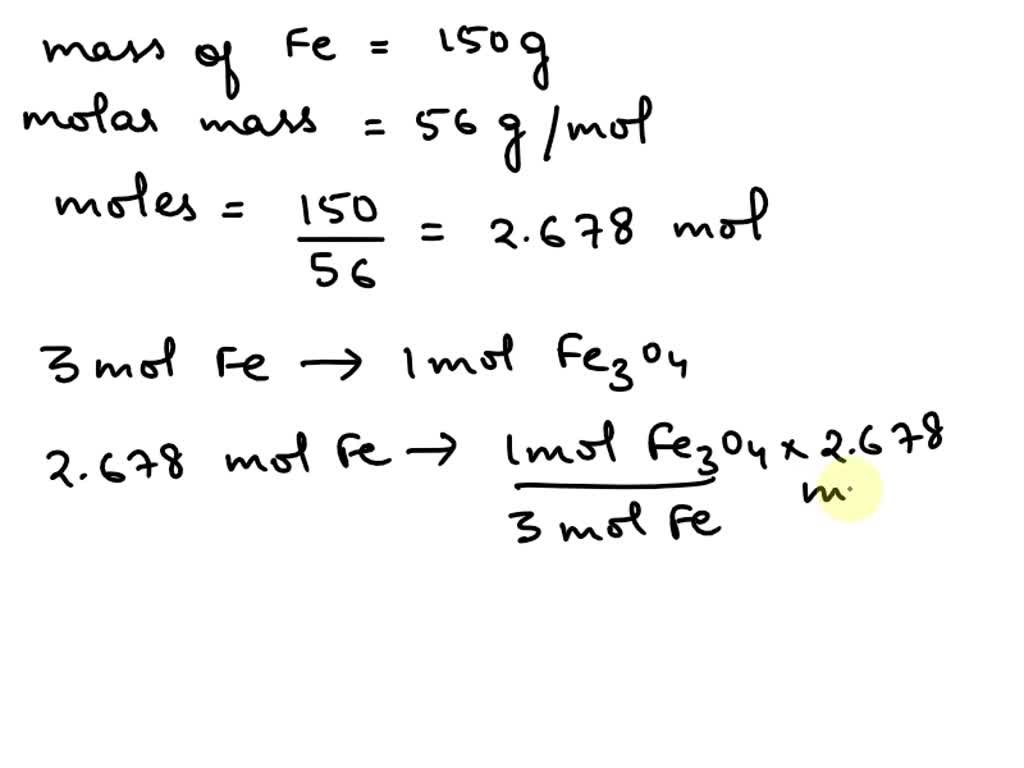 mass of Fe = 150g
molar mass = 56 g/mol
moles = 150/56 = 2.678 mol
3 mol Fe → 1 mol Fe₃O₄
2.678 mol Fe → 1 mol Fe₃O₄/3 mol Fe × 2.678
m